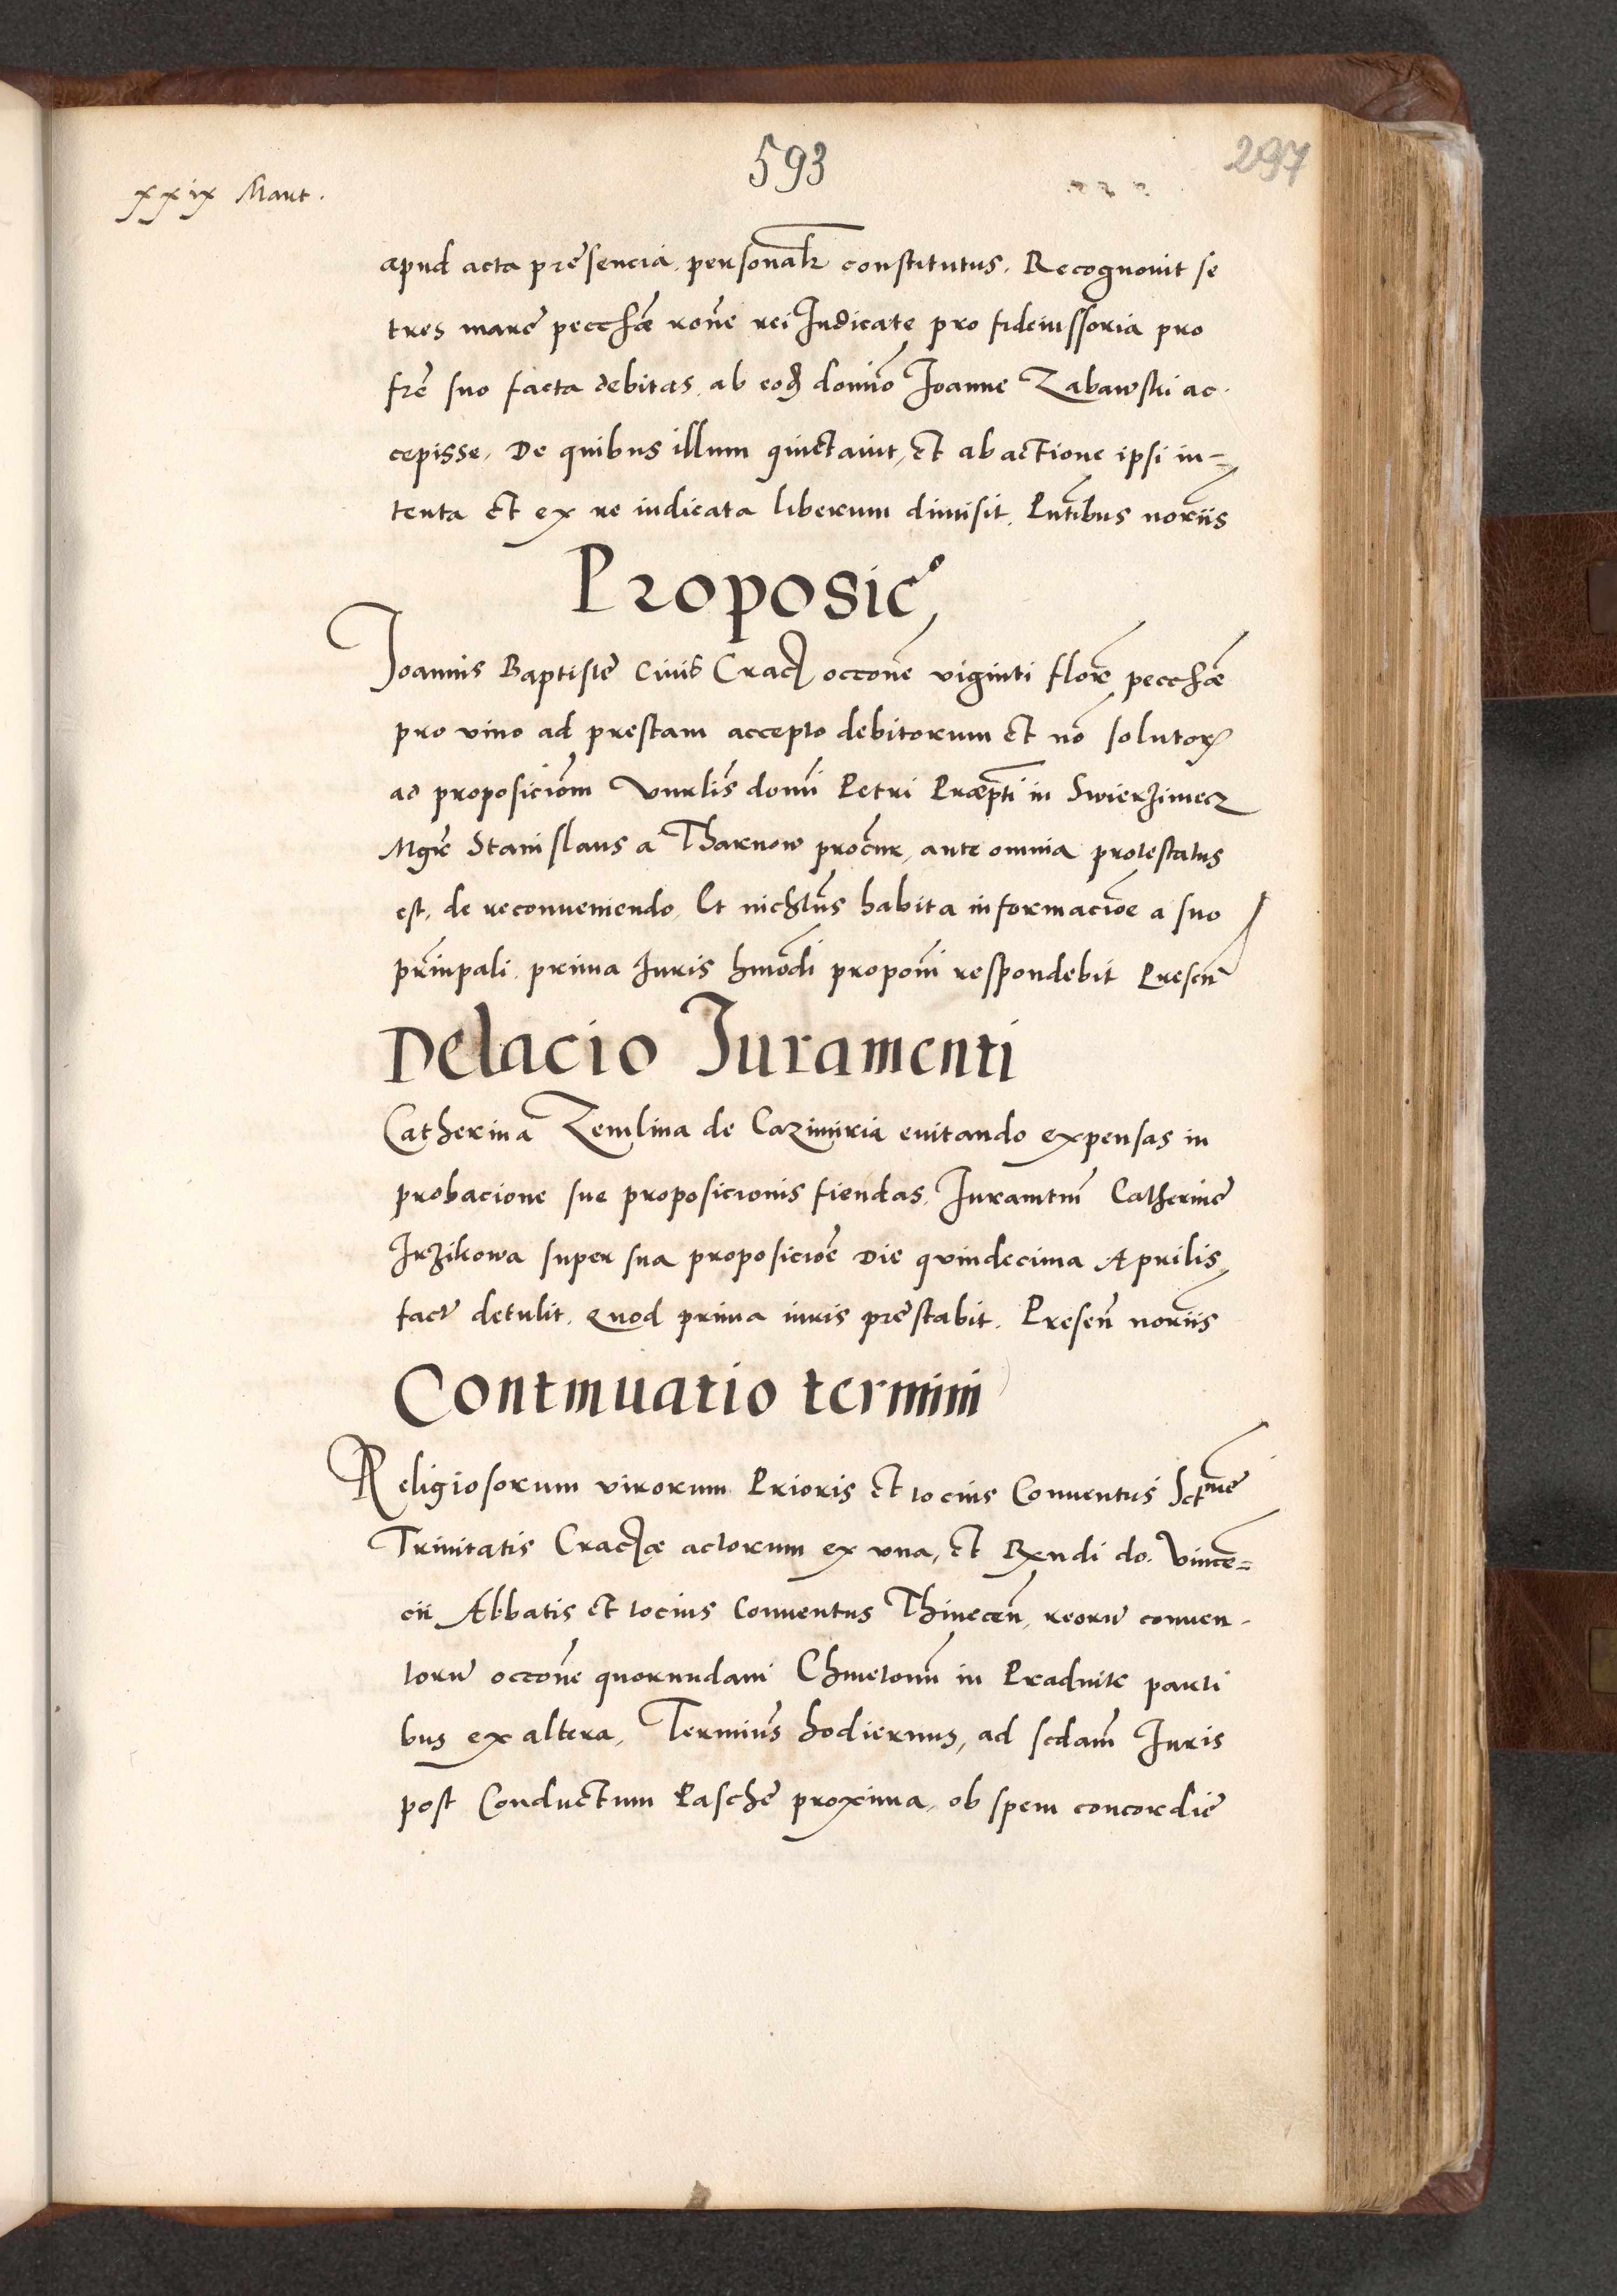 593
297
xxix Mart.
apud acta presencia. personalr constitutus. Recognovit se
tres marc pecchæ rone rei Iudicate pro fideiussoria pro
fre suo facta debitas. ab eod domino Joanne Zabawski ac-
cepisse. De quibus illum quictavit, et ab actione ipsi in=
tenta et ex re iudicata liberum dimisit. Pntibus noriis
Proposicº
Joannis Baptiste Civis Crac occone viginti flore pecchæ
pro vino ad prestam accepto debitorum et no solutor
ad proposiciom Vnrlis domi Petri Præpti in Swierzinecz
Mgr Stanislaus a Tharnow procur, ante omnia protestatus
est, de reconveniendo. Et nichlus habita informacioe a suo
prinpali. prima Iuris hmodi proponi respondebit Presen
Delacio Juramenti
Catherina Zemlina de Cazimiria evitando expensas in
probacione sue proposicionis fiendas. Juramtm Catherine
Irzikowa super sua proposicioe Die quindecima Aprilis
facte detulit. Quod prima iuris prestabit. Presen noriis
Continuatio termini
Religiosorum virorum Prioris et tocius Conventus Sctme
Trinitatis Cracæ actorum ex vna, et Rxndi do. Vince=
cii Abbatis et tocius Conventus Thinecen, reoru conven-
toru occone quorundam Chmetonum in Pradnik parti
bus ex altera, Terminus hodiernus, ad scdam Juris
post Conductum Pasche proxima, ob spem concordie